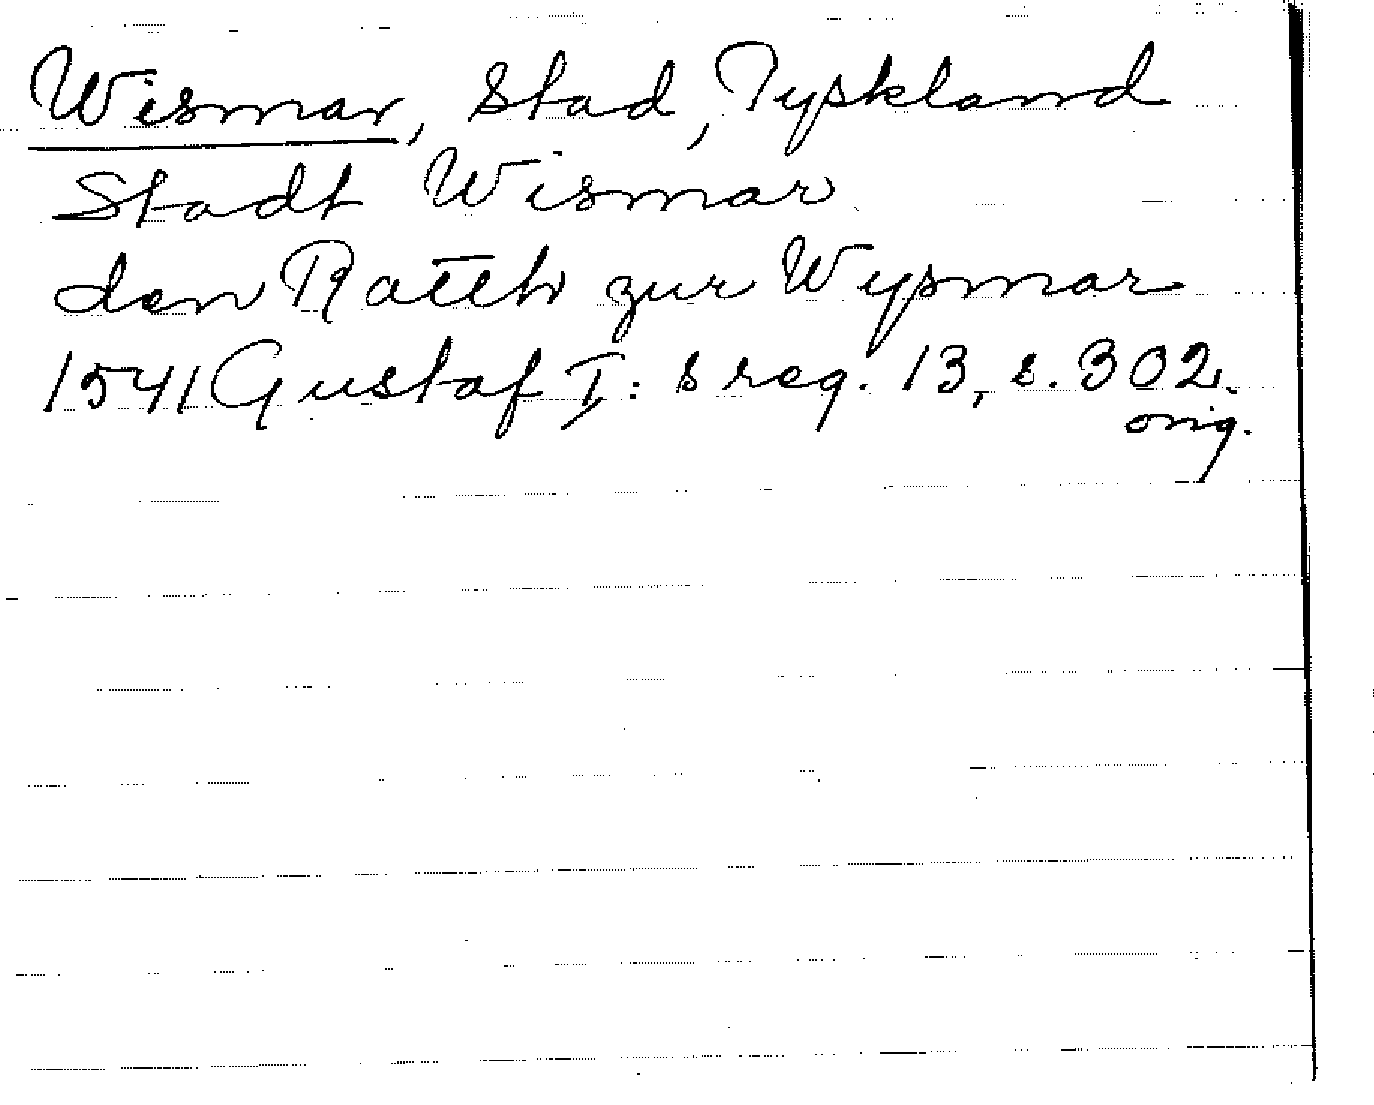 Wismar, Stad, Tyskland
Stadt Wismar
den Ratth zur Wysmar
1541 Gustaf I: s reg. 13, s. 302.
orig.